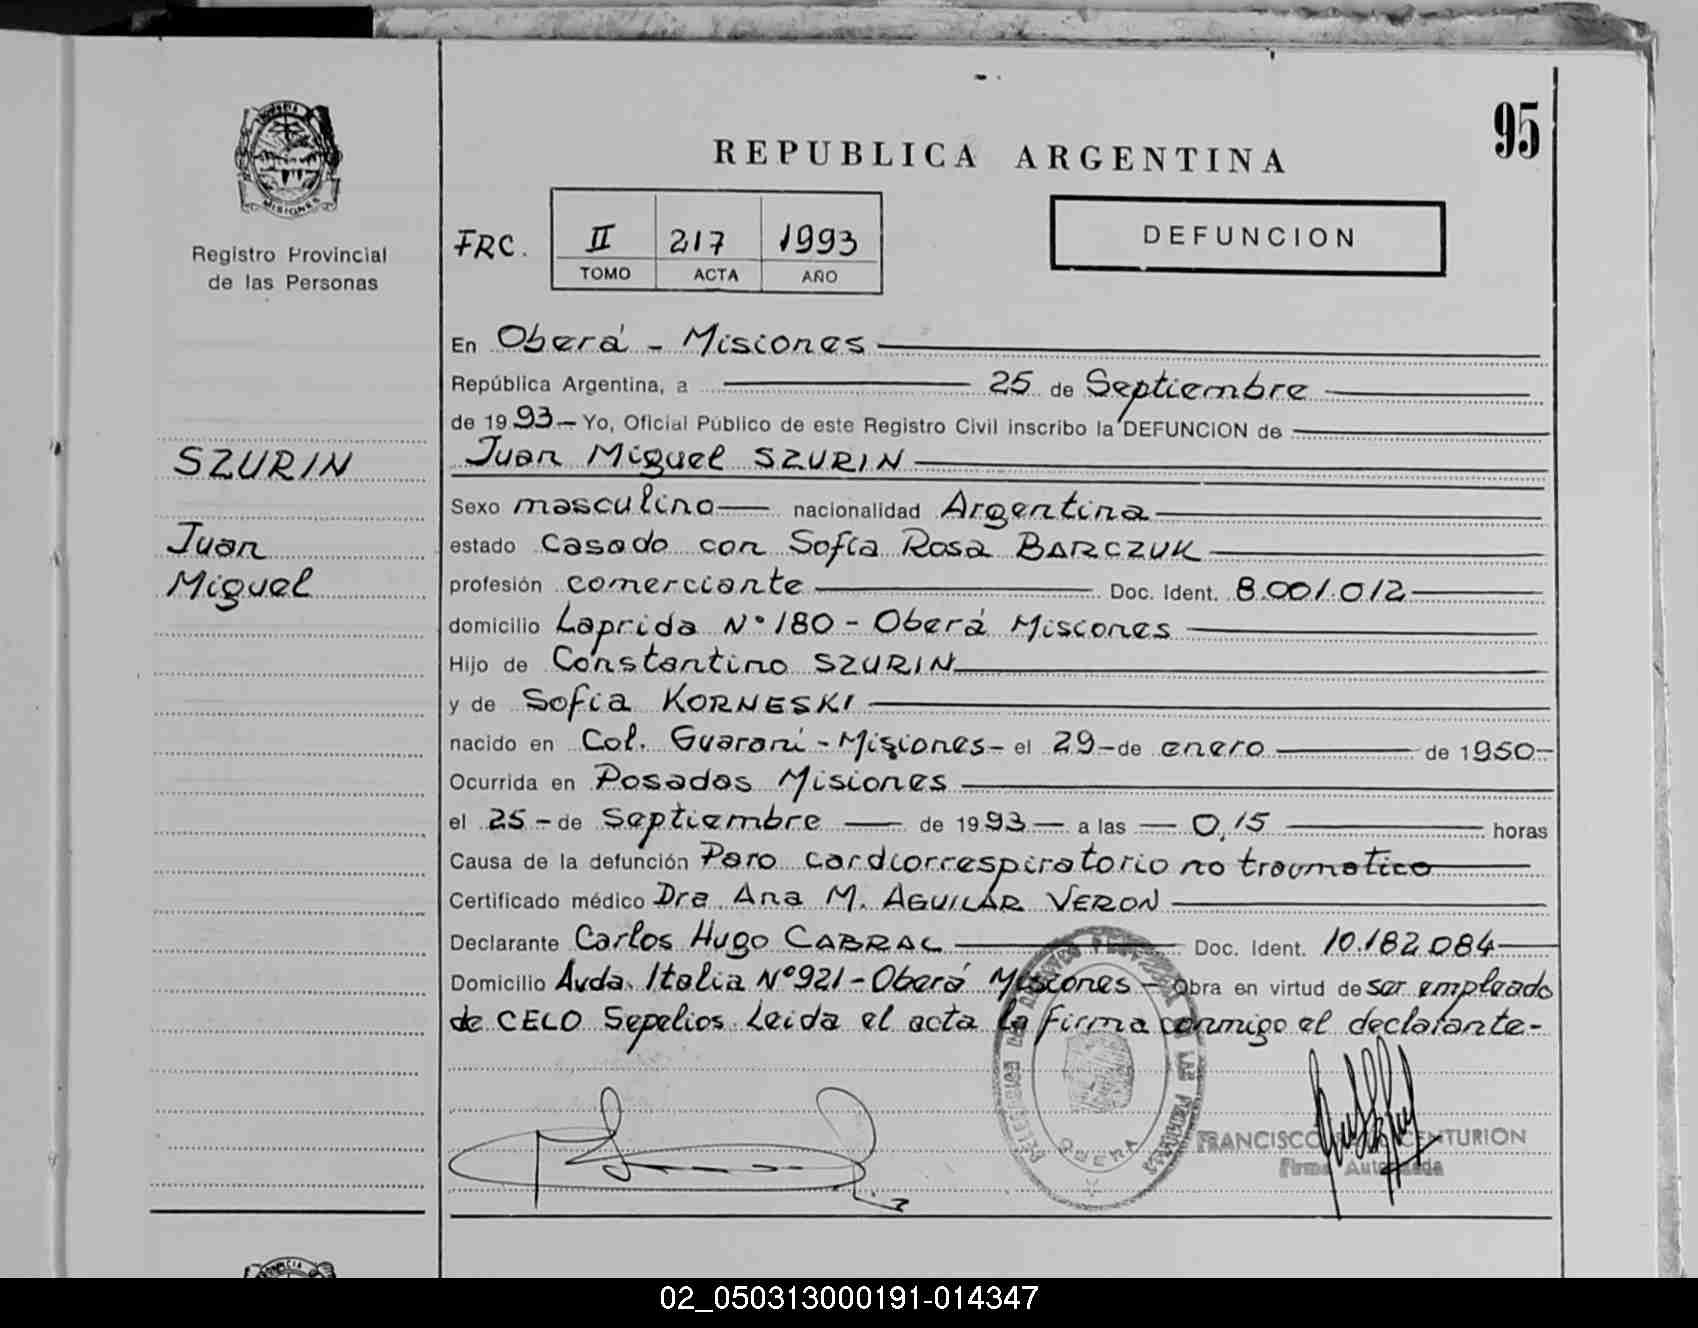 95
PROVINCIA
MISIONES
REPUBLICA ARGENTINA
Registro Provincial
de las Personas
FRC. II 217 1993
TOMO ACTA AÑO
DEFUNCION
SZURIN
Juan
Miguel
En Oberá - Misiones
República Argentina, a 25 de Septiembre
de 1993 - Yo, Oficial Público de este Registro Civil inscribo la DEFUNCION de
Juan Miguel SZURIN
Sexo masculino nacionalidad Argentina
estado casado con Sofía Rosa BARCZUK
profesión comerciante Doc. Ident. 8.001.012
domicilio Laprida Nº 180 - Oberá Misiones
Hijo de Constantino SZURIN
y de Sofia KORNESKI
nacido en Col. Guaraní - Misiones - el 29 - de enero de 1950 -
Ocurrida en Posadas Misiones
el 25 - de Septiembre de 1993 a las 0,15 horas
Causa de la defunción Paro cardiorrespiratorio no traumatico
Certificado médico Dra Ana M. AGUILAR VERON
Declarante Carlos Hugo CABRAL Doc. Ident. 10.182.084
Domicilio Avda. Italia Nº 921 - Oberá Misiones - Obra en virtud de ser empleado
de CELO Sepelios. Leida el acta la firma conmigo el declarante -
DE LAS PERSONAS
OBERA
FRANCISCO CENTURION
Firma Autorizada
02_050313000191-014347